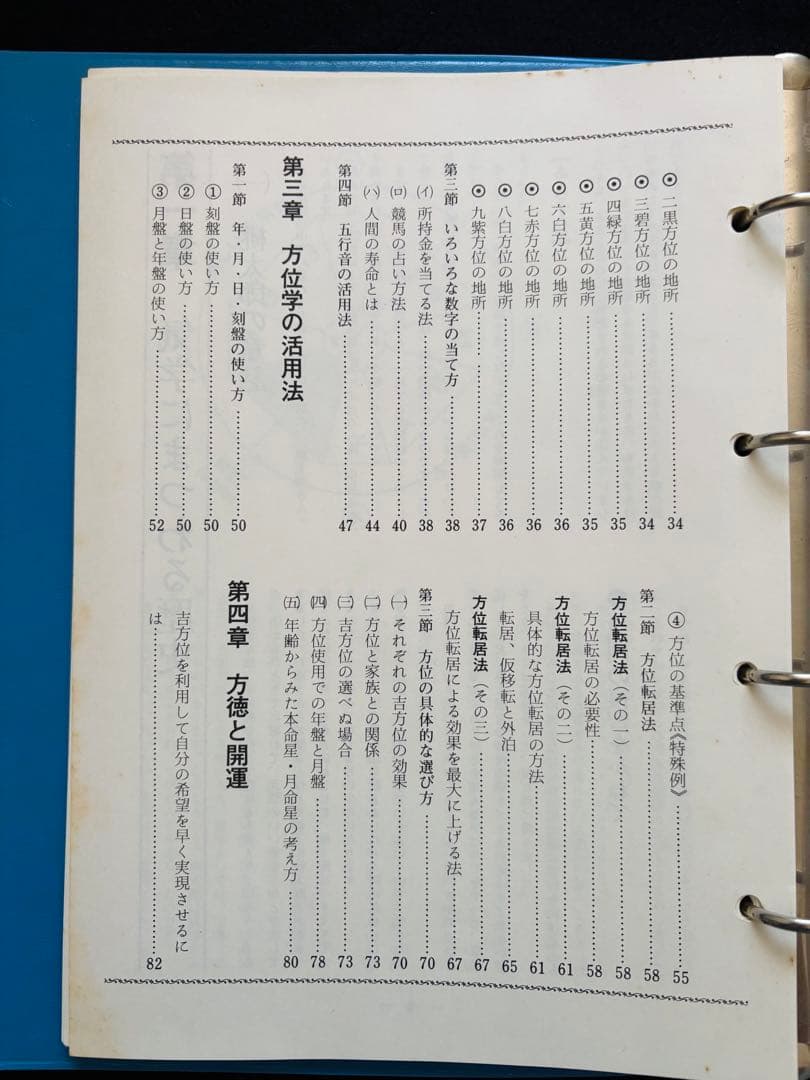 ◉ 二黒方位の地所……34
◉ 三碧方位の地所……34
◉ 四緑方位の地所……35
◉ 五黄方位の地所……35
◉ 六白方位の地所……36
◉ 七赤方位の地所……36
◉ 八白方位の地所……36
◉ 九紫方位の地所……37
第三節 いろいろな数字の当て方……38
(イ) 所持金を当てる法……38
(ロ) 競馬の占い方法……40
(ハ) 人間の寿命とは……44
第四節 五行音の活用法……47
第三章 方位学の活用法
第一節 年・月・日・刻盤の使い方……50
① 刻盤の使い方……50
② 日盤の使い方……50
③ 月盤と年盤の使い方……52
④ 方位の基準点《特殊例》……55
第二節 方位転居法……58
方位転居法（その一）……58
方位転居の必要性……58
方位転居法（その二）……61
具体的な方位転居の方法……61
転居、仮移転と外泊……65
方位転居法（その三）……67
方位転居による効果を最大に上げる法……67
第三節 方位の具体的な選び方……70
(一) それぞれの吉方位の効果……70
(二) 方位と家族との関係……73
(三) 吉方位の選べぬ場合……73
(四) 方位使用での年盤と月盤……78
(五) 年齢からみた本命星・月命星の考え方……80
第四章 方徳と開運
吉方位を利用して自分の希望を早く実現させるに
は……82